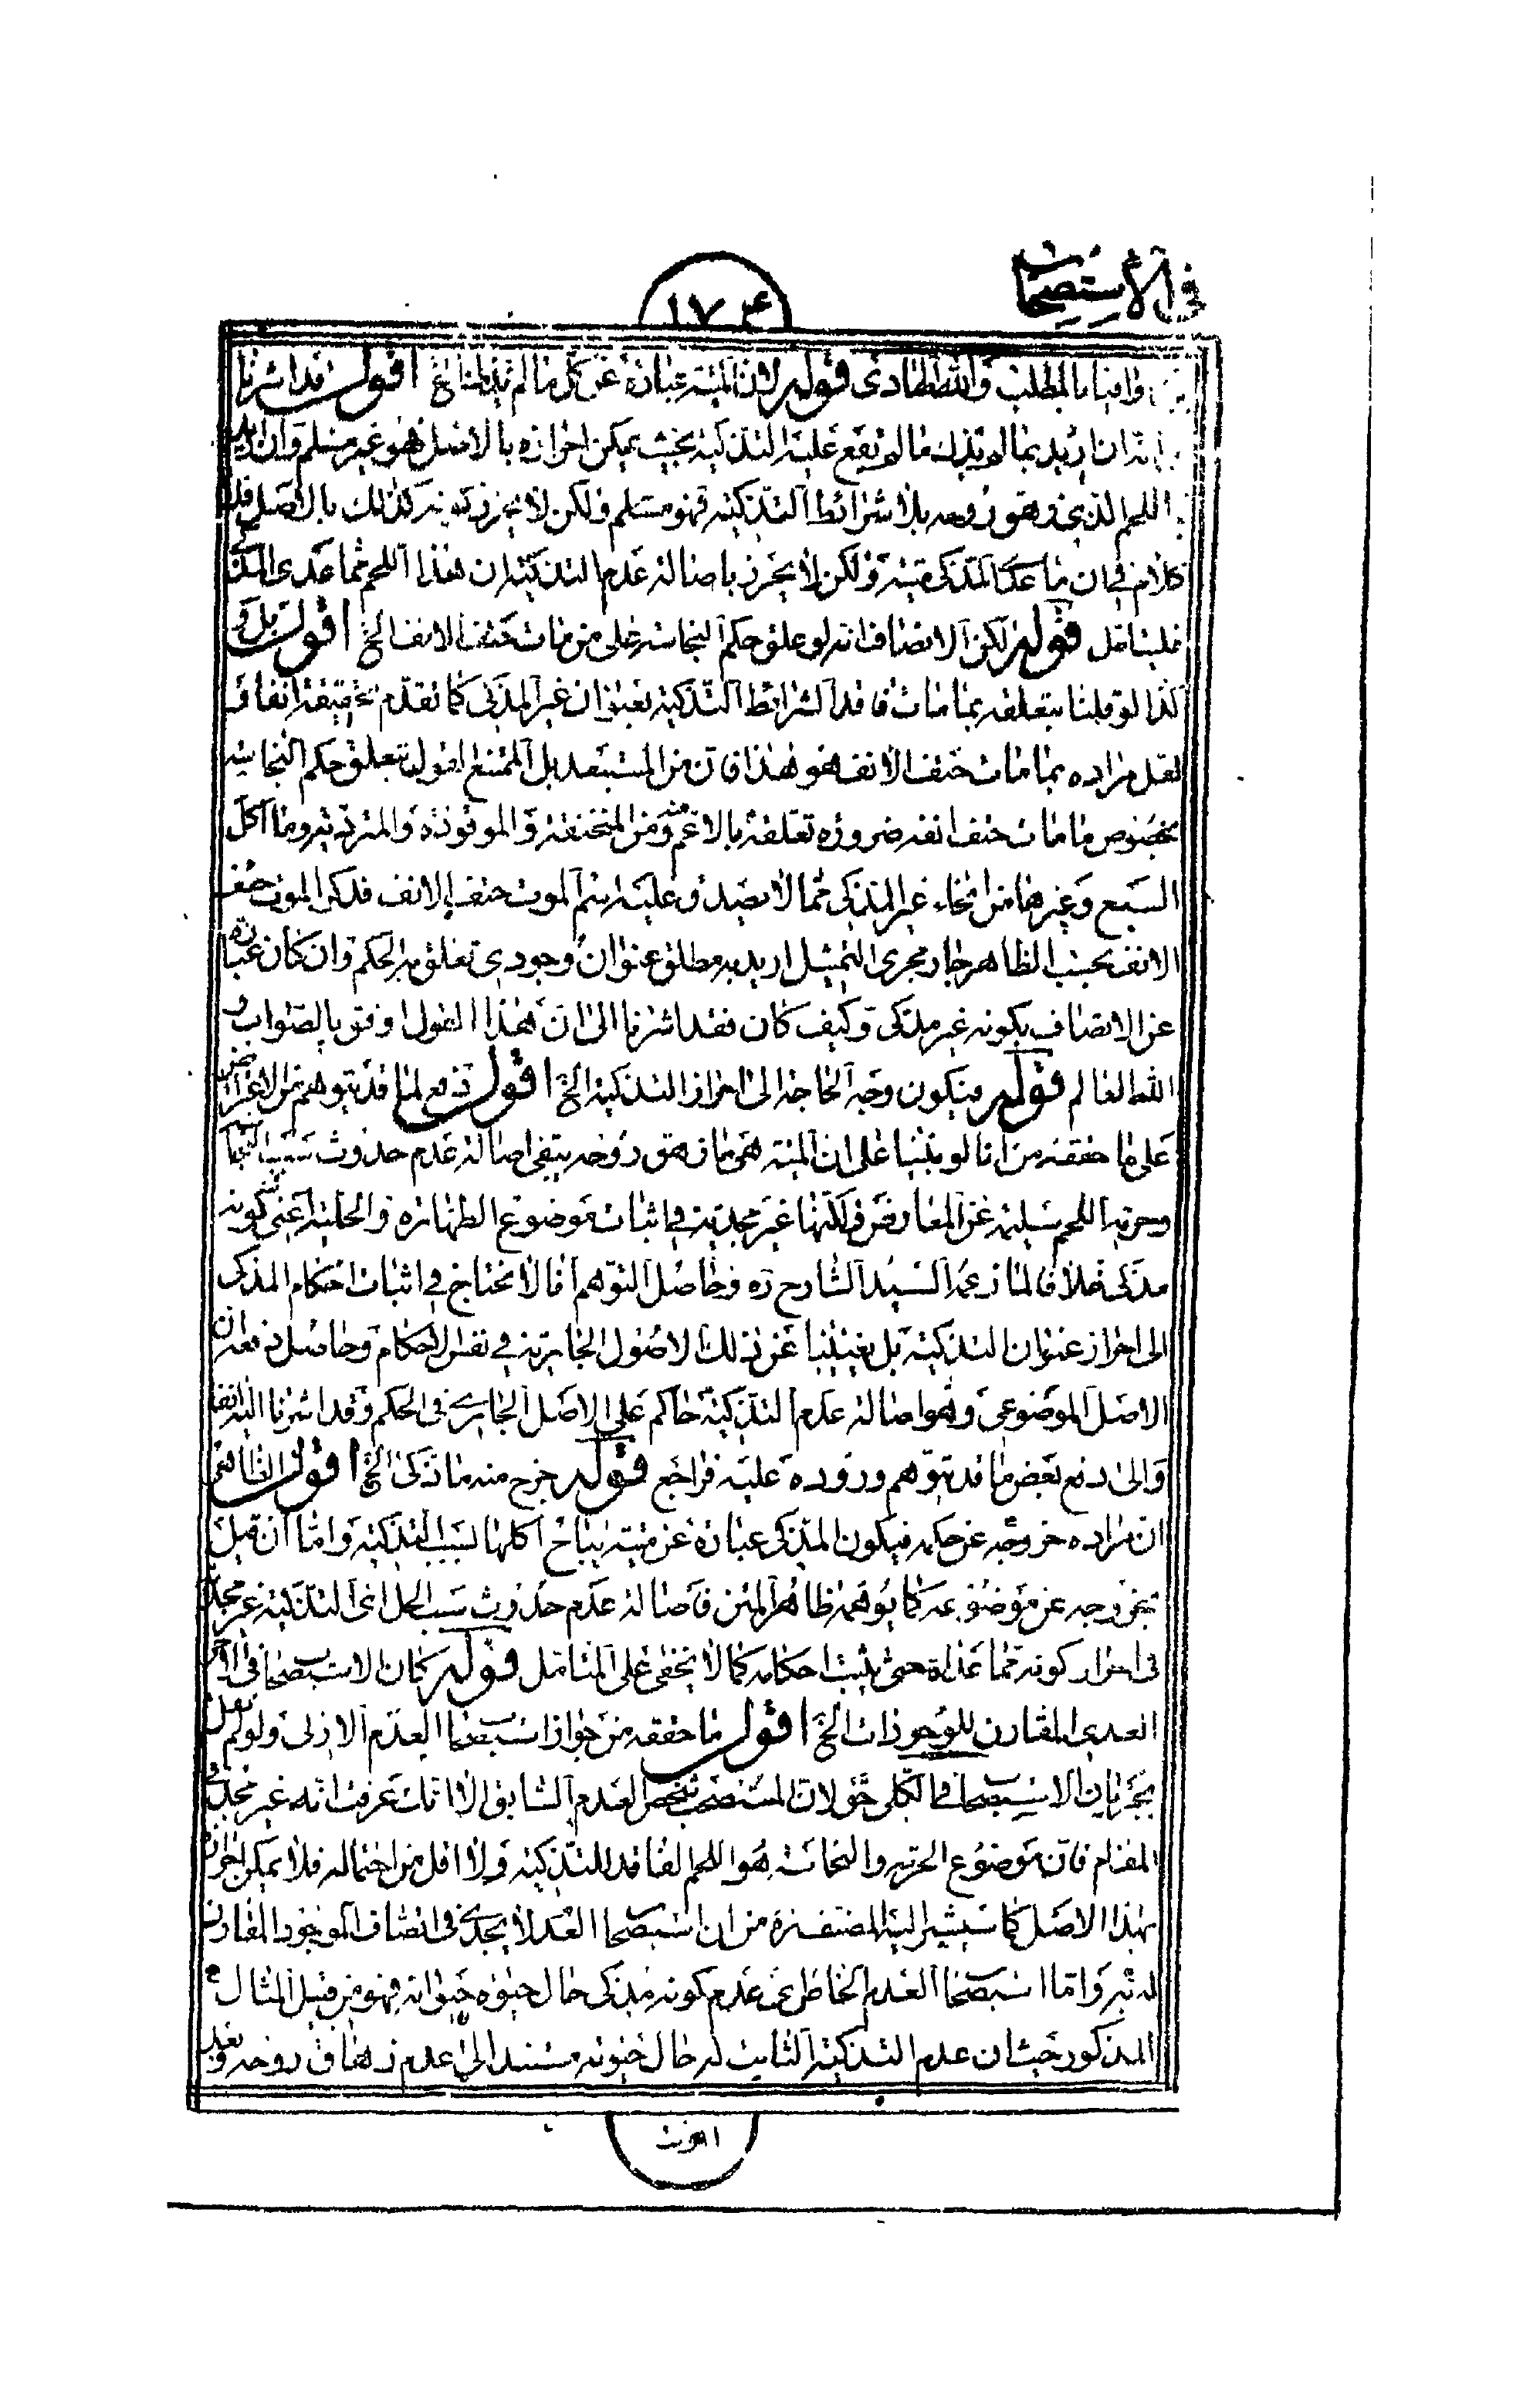 في الاستصحاب
١٧٤
وافيا بالمطلب والله الهادي قوله لان الميتة عبارة عن كل ما لم يذك الخ اقول قد اشرنا
انه ان اريد بما لم يذك ما لم يقع عليه التذكية بحيث يمكن احرازه بالاصل فهو غير مسلم وان اريد
اللحم الذي زهق روحه بلا شرائط التذكية فهو مسلم ولكن لا يحرز كونه كذلك بالاصل فلا
كلام في ان ما عدا المذكى ميتة ولكن لا يحرز باصالة عدم التذكية ان هذا اللحم مما عدى المذكى
فليتامل قوله لكن الانصاف انه لو علق حكم النجاسة على من مات حتف الانف الخ اقول بل و
كذا لو قلنا بتعلقه بما مات فاقد الشرائط التذكية بعنوان غير المذكى كما تقدم تحقيقه انفا و
لعل مراده بما مات حتف الانف هو هذا فان من المستبعد بل الممتنع القول بتعلق حكم النجاسة
بخصوص ما مات حتف انفه ضرورة تعلقه بالاعم منه ومن المنخنقة والموقوذة والمتردية وما اكل
السبع وغيرها من انحاء غير المذكى مما لا يصدق عليه اسم الموت حتف الانف فذكر الموت حتف
الانف بحسب الظاهر جار مجرى التمثيل اريد به مطلق عنوان وجودي تعلق به الحكم وان كان عبارة
عن الاتصاف بكونه غير مذكى وكيف كان فقد اشرنا الى ان هذا القول اوفق بالصواب و
الله العالم قوله فيكون وجه الحاجة الى احراز التذكية الخ اقول دفع لما قد يتوهم من الاعتراض
على ما حققه من انا لو بنينا على ان الميتة هي ما زهق روحه يبقى اصالة عدم حدوث سبب النجاسة
وحرمة اللحم سليمة عن المعارض ولكنها غير مجدية في اثبات موضوع الطهارة والحلية اعني كونه
مذكى خلافا لما زعمه السيد الشارح ره وحاصل التوهم انا لا نحتاج في اثبات احكام المذكى
الى احراز عنوان التذكية بل يغنينا عن ذلك الاصول الجارية في نفس الاحكام وحاصل دفعه ان
الاصل الموضوعي وهو اصالة عدم التذكية حاكم على الاصل الجاري في الحكم وقد اشرنا اليه انفا
والى دفع بعض ما قد يتوهم وروده عليه فراجع قوله خرج منه ما ذكى الخ اقول الظاهر
ان مراده خروجه عن حكمه فيكون المذكى عبارة عن ميتة يباح اكلها بسبب التذكية واما ان قيل
بخروجه عن موضوعه كما يوهمه ظاهر المتن فاصالة عدم حدوث سبب الحل اعني التذكية غير مجد
في احراز كونه مما عداه حتى يثبت احكامه كما لا يخفى على المتامل قوله كان الاستصحاب في الامر
العدمي المقارن للوجودات الخ اقول ما حققه من جواز استصحاب العدم الازلي ولو لم نقل
بجريان الاستصحاب في الكلي حق لان المستصحب شخص العدم السابق الا انك عرفت انه غير مجد في
المقام فان موضوع الحرمة والنجاسة هو اللحم الفاقد للتذكية ولا اقل من احتماله فلا يمكن احرازه
بهذا الاصل كما سيشير اليه المصنف ره من ان استصحاب العدم لا يجدي في اتصاف الموجود المقارن
له به واما استصحاب العدم الخاص اعني عدم كونه مذكى حال حيوة حيوانه فهو من قبيل المثال
المذكور حيث ان عدم التذكية الثابت له حال حيوته مستند الى عدم زهاق روحه وبعد